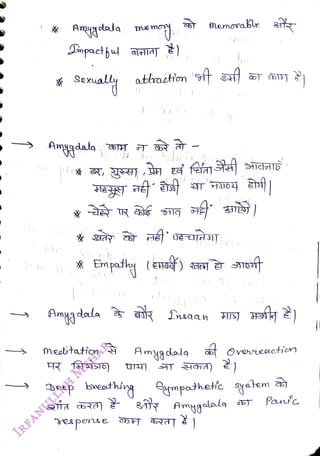 * Amygdala memory को memorable और
Impactful बनाता है।
* Sexually attraction भी इसी का काम है।
→ Amygdala काम न करे तो -
* डर, गुस्सा, प्रेम एवं चिंता जैसी भावनाएं
महसूस नहीं होगी या नगण्य होगी।
* चेहरे पर कोई भाव नहीं आएंगे।
* खतरे को नहीं पहचानेगा।
* Empathy (हमदर्दी) खत्म हो जाएगी
→ Amygdala के बगैर Insaan मात्र मशीन है।
→ meditation से Amygdala की Overreaction
पर नियंत्रण पाया जा सकता है।
→ Deep breathing Sympathetic system को
शांत करता है और Amygdala का Panic
response कम करता है।
IRFANULLAH